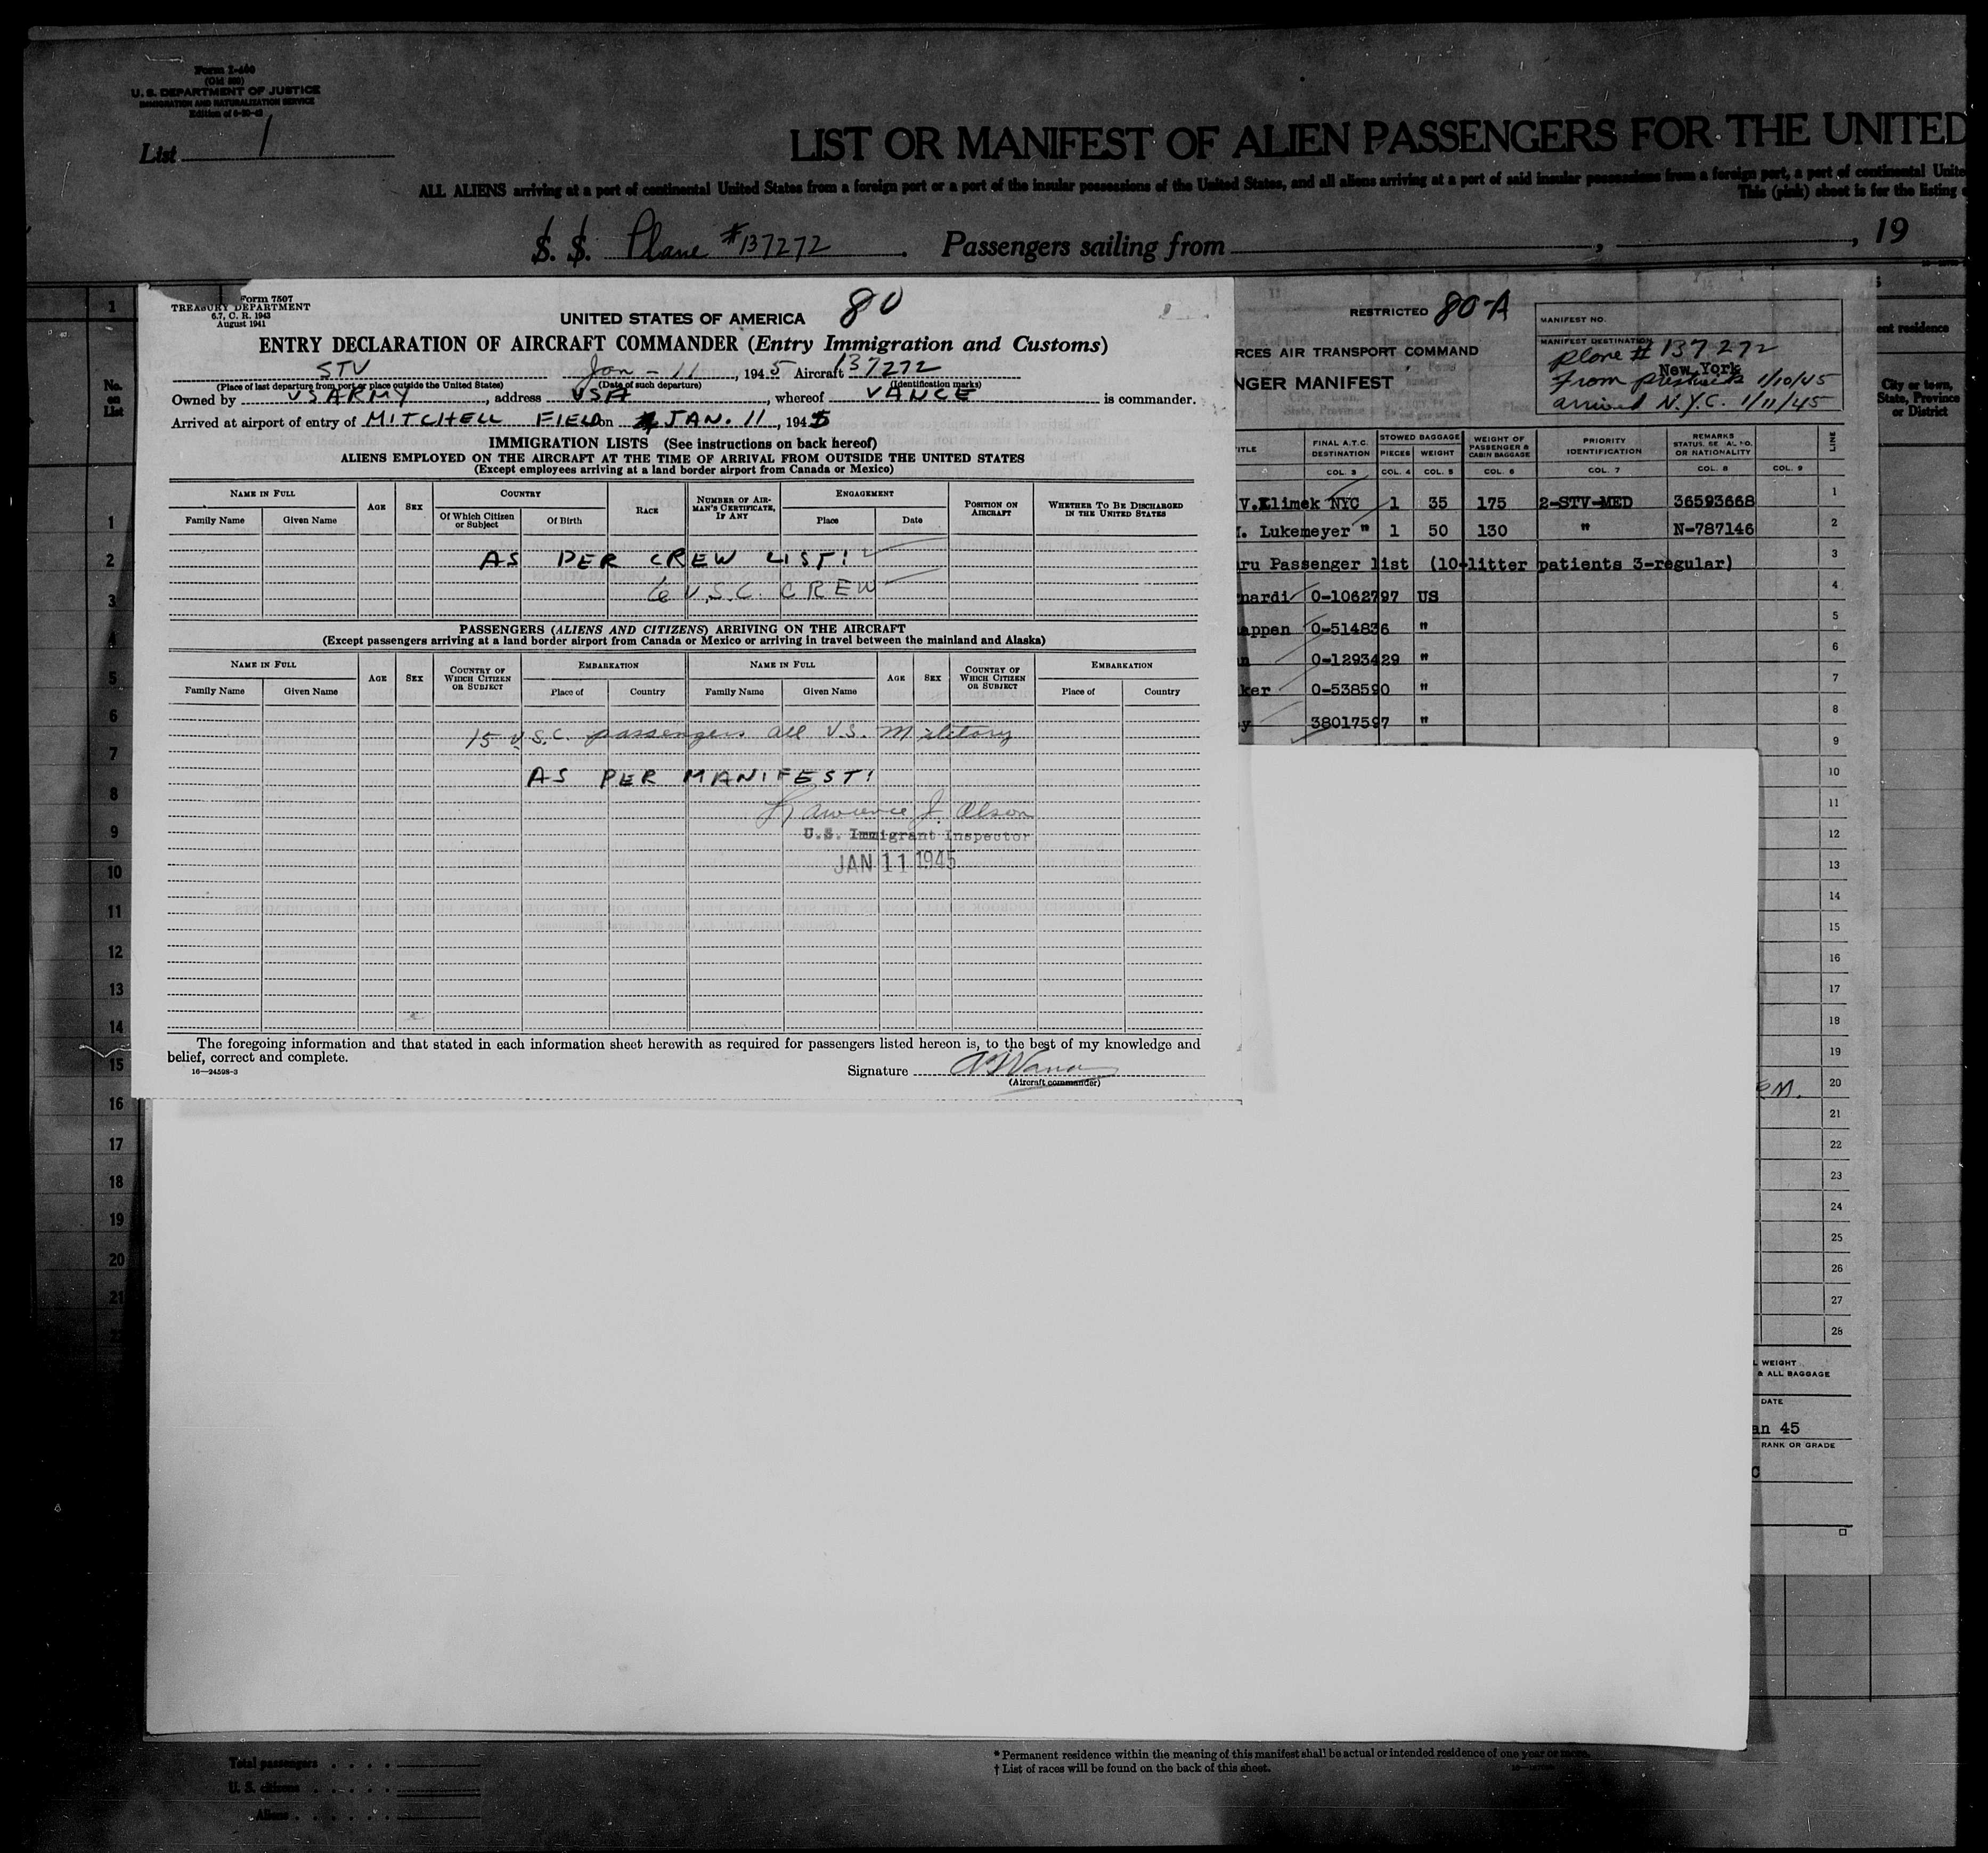 Form I-460
(Old 500)
U. S. DEPARTMENT OF JUSTICE
IMMIGRATION AND NATURALIZATION SERVICE
List 1
LIST OR MANIFEST OF ALIEN PASSENGERS FOR THE UNITED
ALL ALIENS arriving at a port of continental United States from a foreign port or a port of the insular possessions of the United States, and all aliens arriving at a port of said insular possessions from a foreign port, a port of continental Unite
This (pink) sheet is for the listing
S. S. Plane #137272. Passengers sailing from , , 19
Form 7507
TREASURY DEPARTMENT
6.7, C. R. 1943
August 1941
80
UNITED STATES OF AMERICA
ENTRY DECLARATION OF AIRCRAFT COMMANDER (Entry Immigration and Customs)
STV Jan - 11, 1945 Aircraft 137272
(Place of last departure from port or place outside the United States) (Date of such departure) (Identification marks)
Owned by US ARMY, address USA, whereof VANCE is commander.
Arrived at airport of entry of MITCHELL FIELD on JAN. 11, 1945
IMMIGRATION LISTS (See instructions on back hereof)
ALIENS EMPLOYED ON THE AIRCRAFT AT THE TIME OF ARRIVAL FROM OUTSIDE THE UNITED STATES
(Except employees arriving at a land border airport from Canada or Mexico)
NAME IN FULL AGE SEX COUNTRY RACE NUMBER OF AIRMAN'S CERTIFICATE, IF ANY ENGAGEMENT POSITION ON AIRCRAFT WHETHER TO BE DISCHARGED IN THE UNITED STATES
Family Name Given Name Of Which Citizen or Subject Of Birth Place Date
AS PER CREW LIST!
6 U.S.C. CREW
PASSENGERS (ALIENS AND CITIZENS) ARRIVING ON THE AIRCRAFT
(Except passengers arriving at a land border airport from Canada or Mexico or arriving in travel between the mainland and Alaska)
NAME IN FULL AGE SEX COUNTRY OF WHICH CITIZEN OR SUBJECT EMBARKATION NAME IN FULL AGE SEX COUNTRY OF WHICH CITIZEN OR SUBJECT EMBARKATION
Family Name Given Name Place of Country Family Name Given Name Place of Country
15 U.S.C. passengers all U.S. Military
AS PER MANIFEST!
Lawrence J. Olson
U.S. Immigrant Inspector
JAN 11 1945
The foregoing information and that stated in each information sheet herewith as required for passengers listed hereon is, to the best of my knowledge and
belief, correct and complete.
16—24598-3
Signature
(Aircraft commander)
RESTRICTED 80-A
RCES AIR TRANSPORT COMMAND
NGER MANIFEST
MANIFEST NO.
MANIFEST DESTINATION
plane # 137272
New York
From Prestwick 1/10/45
arrived N.Y.C. 1/11/45
ITLE FINAL A.T.C. DESTINATION STOWED BAGGAGE PIECES WEIGHT WEIGHT OF PASSENGER & CABIN BAGGAGE PRIORITY IDENTIFICATION REMARKS OR NATIONALITY LINE
COL. 3 COL. 4 COL. 5 COL. 6 COL. 7 COL. 8 COL. 9
V.Klimek NYC 1 35 175 2-STV-MED 36593668 1
. Lukemeyer " 1 50 130 " N-787146 2
ru Passenger list (10-litter patients 3-regular) 3
nardi 0-1062797 US 4
appen 0-514836 " 5
n 0-1293429 " 6
ker 0-538590 " 7
y 38017597 " 8
9
10
11
12
13
14
15
16
17
18
19
20
21
22
23
24
25
26
27
28
WEIGHT
& ALL BAGGAGE
DATE
an 45
RANK OR GRADE
C
ent residence
City or town,
State, Province
or District
No.
on
List
1
1
2
3
4
5
6
7
8
9
10
11
12
13
14
15
16
17
18
19
20
21
Total passengers
U. S. citizens
Aliens
* Permanent residence within the meaning of this manifest shall be actual or intended residence of one year or more.
† List of races will be found on the back of this sheet.